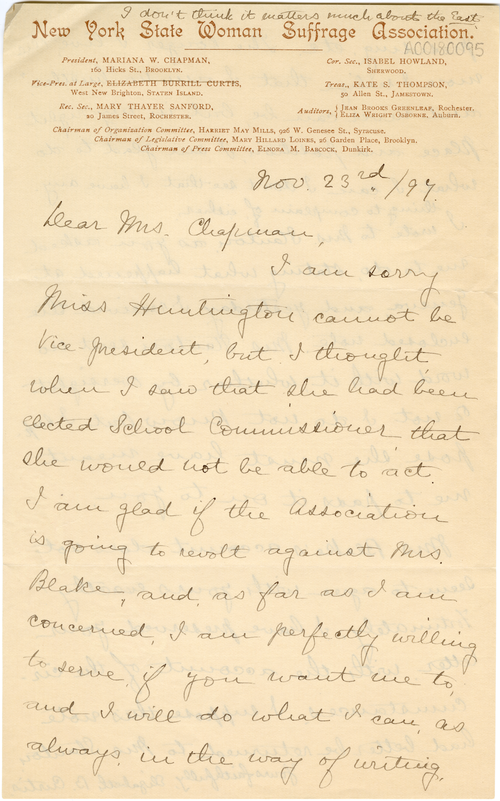 I don't think it matters much about the East.
New York State Woman Suffrage Association.
AC0180095
President, MARIANA W. CHAPMAN,
160 Hicks St., BROOKLYN.
Vice-Pres. at Large, ELIZABETH BURRILL CURTIS,
West New Brighton, STATEN ISLAND.
Rec. Sec., MARY THAYER SANFORD,
20 James Street, ROCHESTER.
Cor. Sec., ISABEL HOWLAND,
SHERWOOD.
Treas., KATE S. THOMPSON,
50 Allen St., JAMESTOWN.
Auditors, { JEAN BROOKS GREENLEAF, Rochester.
ELIZA WRIGHT OSBORNE, Auburn.
Chairman of Organization Committee, HARRIET MAY MILLS, 926 W. Genesee St., Syracuse.
Chairman of Legislative Committee, MARY HILLARD LOINES, 26 Garden Place, Brooklyn.
Chairman of Press Committee, ELNORA M. BABCOCK, Dunkirk.
Nov. 23rd/97.
Dear Mrs. Chapman,
I am sorry
Miss Huntington cannot be
Vice-president, but I thought
when I saw that she had been
elected School Commissioner, that
she would not be able to act.
I am glad if the Association
is going to revolt against Mrs.
Blake, and, as far as I am
concerned, I am perfectly willing
to serve, if you want me to,
and I will do what I can, as
always, in the way of writing.